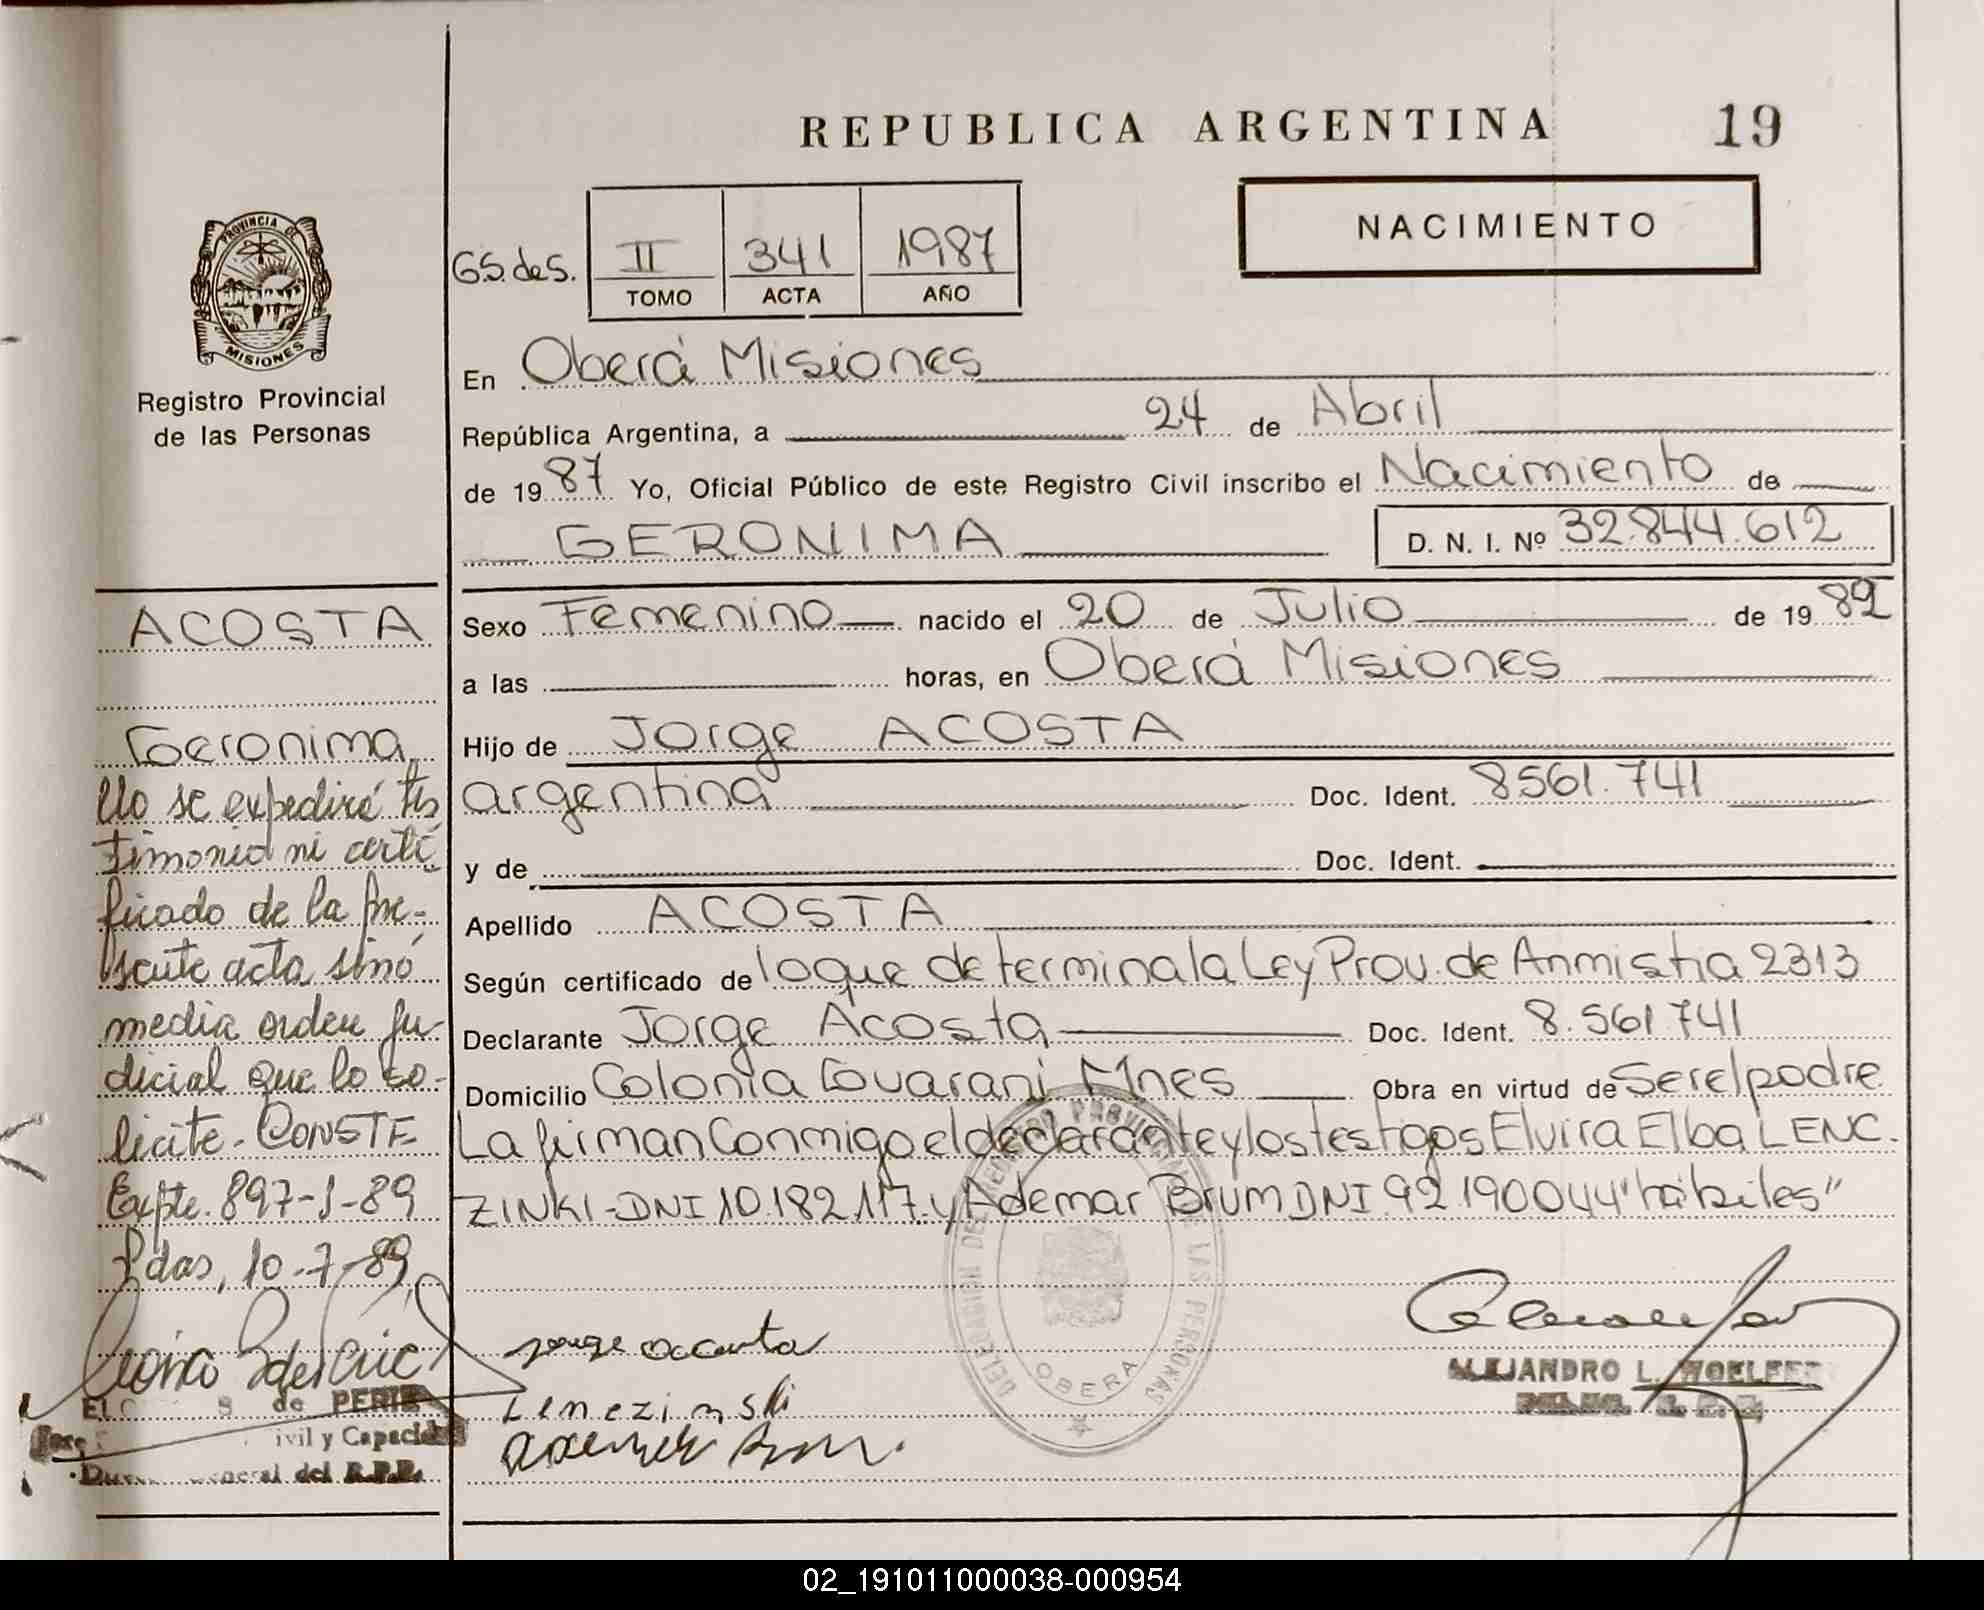 REPUBLICA ARGENTINA
19
NACIMIENTO
G.S. de S.
II 341 1987
TOMO ACTA AÑO
PROVINCIA DE
MISIONES
Registro Provincial
de las Personas
En Oberá Misiones
República Argentina, a 24 de Abril
de 1987 Yo, Oficial Público de este Registro Civil inscribo el Nacimiento de
GERONIMA
D. N. I. Nº 32.844.612
Sexo Femenino nacido el 20 de Julio de 1982
a las horas, en Oberá Misiones
Hijo de Jorge ACOSTA
argentina Doc. Ident. 8561.741
y de Doc. Ident.
Apellido ACOSTA
Según certificado de lo que determina la Ley Prov. de Anmistia 2313
Declarante Jorge Acosta Doc. Ident. 8.561741
Domicilio Colonia Guarani Mnes Obra en virtud de Ser el padre
La firman Conmigo el declarante y los testigos Elvira Elba LENC.
ZINKI-DNI 10.182.117. y Ademar Brum DNI 92.190044 "hábiles"
ACOSTA
Geronima
No se expedirá tes
timonio ni certi
ficado de la pre-
sente acta sinó
media orden ju-
dicial que lo so-
licite. CONSTE
Expte. 897-J-89
Pdas, 10-7-89
de PERIE
ivil y Capacid
General del R.P.P.
Jorge accosta
Lenczinski
DELEGACION DEL REGISTRO PROVINCIAL DE LAS PERSONAS
OBERA
ALEJANDRO L.
02_191011000038-000954